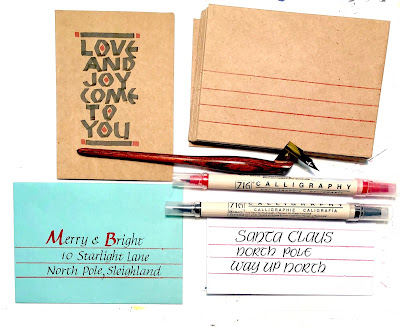 LOVE
AND
JOY
COME
TO
YOU
ZIG CALLIGRAPHY
ZIG CALLIGRAPHY
CALLIGRAPHIE CALIGRAFIA
Merry & Bright
10 Starlight Lane
North Pole, Sleighland
SANTA CLAUS
NORTH POLE
WAY UP NORTH